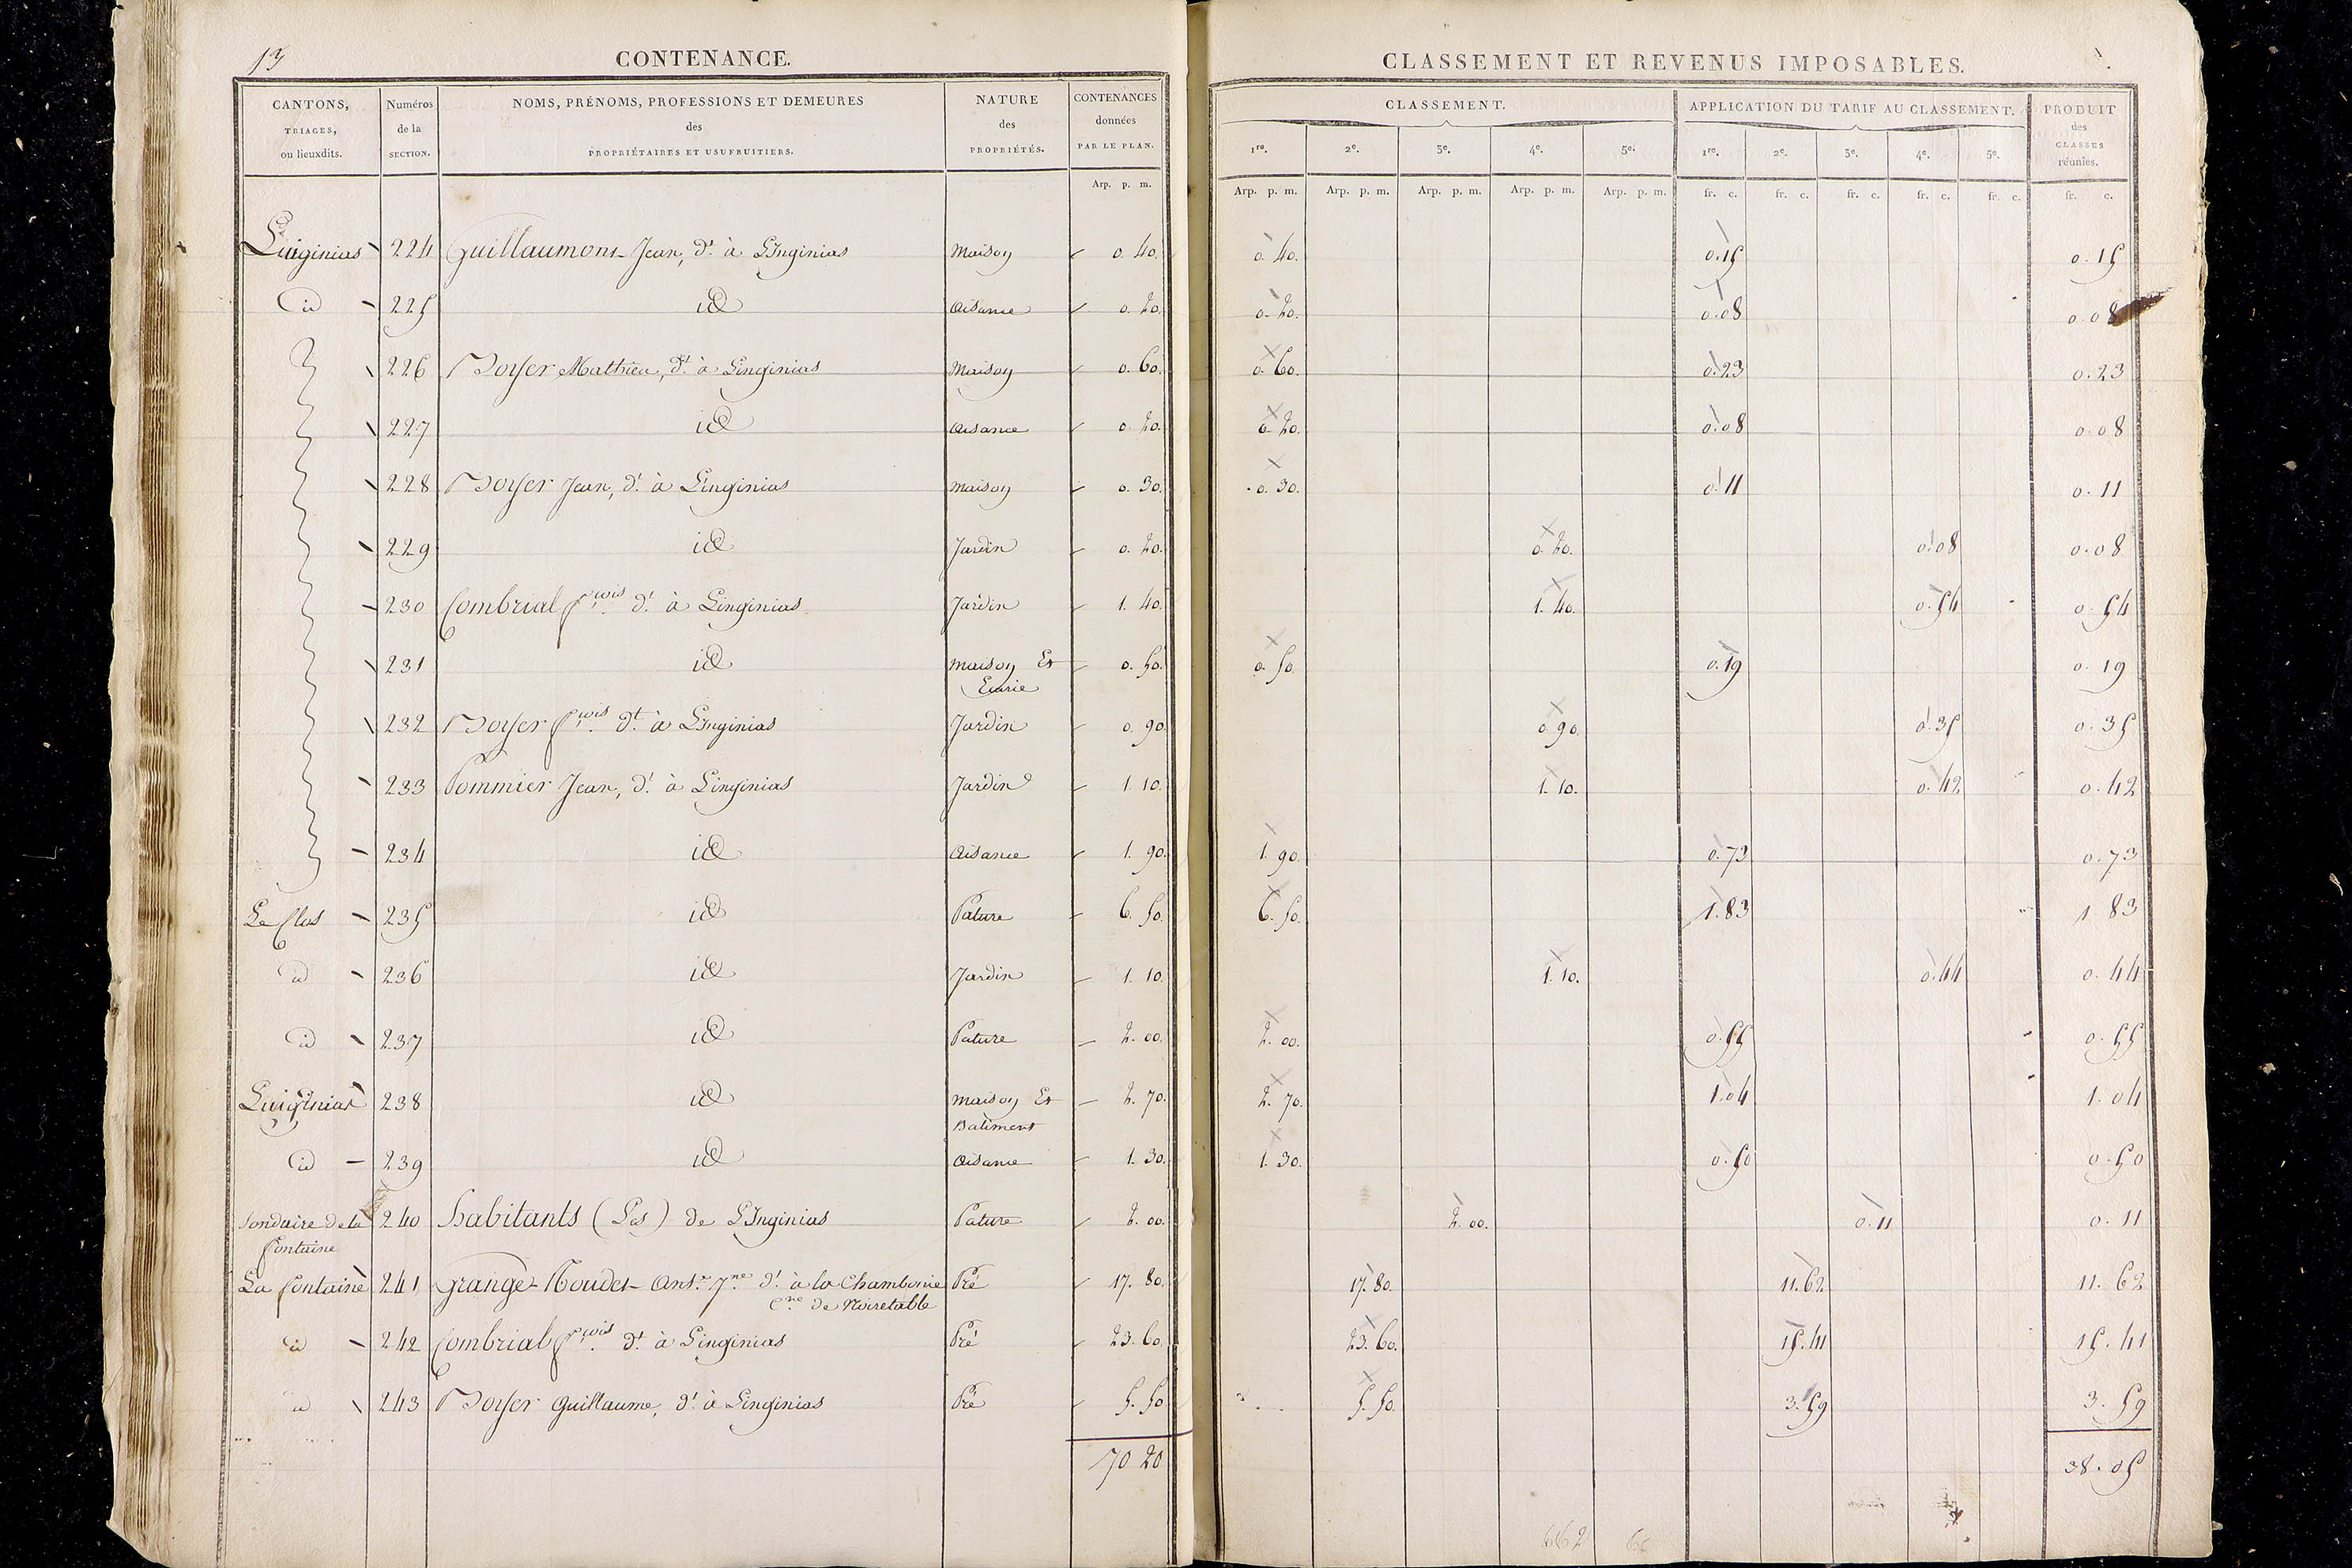 13 CONTENANCE. CLASSEMENT ET REVENUS IMPOSABLES.
CANTONS, TRIAGES, ou lieuxdits. Numéros de la SECTION. NOMS, PRÉNOMS, PROFESSIONS ET DEMEURES des PROPRIÉTAIRES ET USUFRUITIERS. NATURE des PROPRIÉTÉS. CONTENANCES données PAR LE PLAN. CLASSEMENT. APPLICATION DU TARIF AU CLASSEMENT. PRODUIT des CLASSES réunies.
1re. 2e. 3e. 4e. 5e. 1re. 2e. 3e. 4e. 5e.
Arp. p. m. Arp. p. m. Arp. p. m. Arp. p. m. Arp. p. m. Arp. p. m. fr. c. fr. c. fr. c. fr. c. fr. c. fr. c.
Linginias 224 Guillaumont Jean, dt. à L'Inginias Maison 0. 40. 0. 40. 0.15 0.15
id 225 id Aisance 0. 20. 0. 20. 0.08 0.08
226 Boyer Mathieu, dt. à Linginias Maison 0. 60. 0. 60. 0.23 0.23
227 id Aisance 0. 20. 0. 20. 0.08 0.08
228 Boyer Jean, dt. à Linginias Maison 0. 30. 0. 30. 0.11 0.11
229 id Jardin 0. 20. 0. 20. 0.08 0.08
230 Combrial fçois dt. à Linginias Jardin 1. 40. 1. 40. 0.54 0.54
231 id Maison Et Ecurie 0. 50. 0. 50. 0.19 0.19
232 Boyer fçois dt. à L'Inginias Jardin 0. 90. 0. 90. 0.35 0.35
233 Pommier Jean, dt. à Linginias Jardin 1. 10. 1. 10. 0.42 0.42
234 id Aisance 1. 90. 1. 90. 0.73 0.73
Le Clos 235 id Pature 6. 50. 6. 50. 1.83 1.83
id 236 id Jardin 1. 10. 1. 10. 0.44 0.44
id 237 id Pature 2. 00. 2. 00. 0.55 0.55
Linginias 238 id Maison Et Batiment 2. 70. 2. 70. 1.04 1.04
id 239 id Aisance 1. 30. 1. 30. 0.50 0.50
de la fontaine 240 habitants (Les) de L'Inginias Pature 2. 00. 2. 00. 0.11 0.11
La fontaine 241 Grange dt. à la Chambonie Cne de Noiretable Pré 17. 80. 17. 80. 11.62 11.62
id 242 Combrial fçois dt. à Linginias Pré 23. 60. 23. 60. 15.41 15.41
id 243 Boyer Guillaume, dt. à Linginias Pré 5. 50. 5. 50. 3.59 3.59
70 20 38.05
662